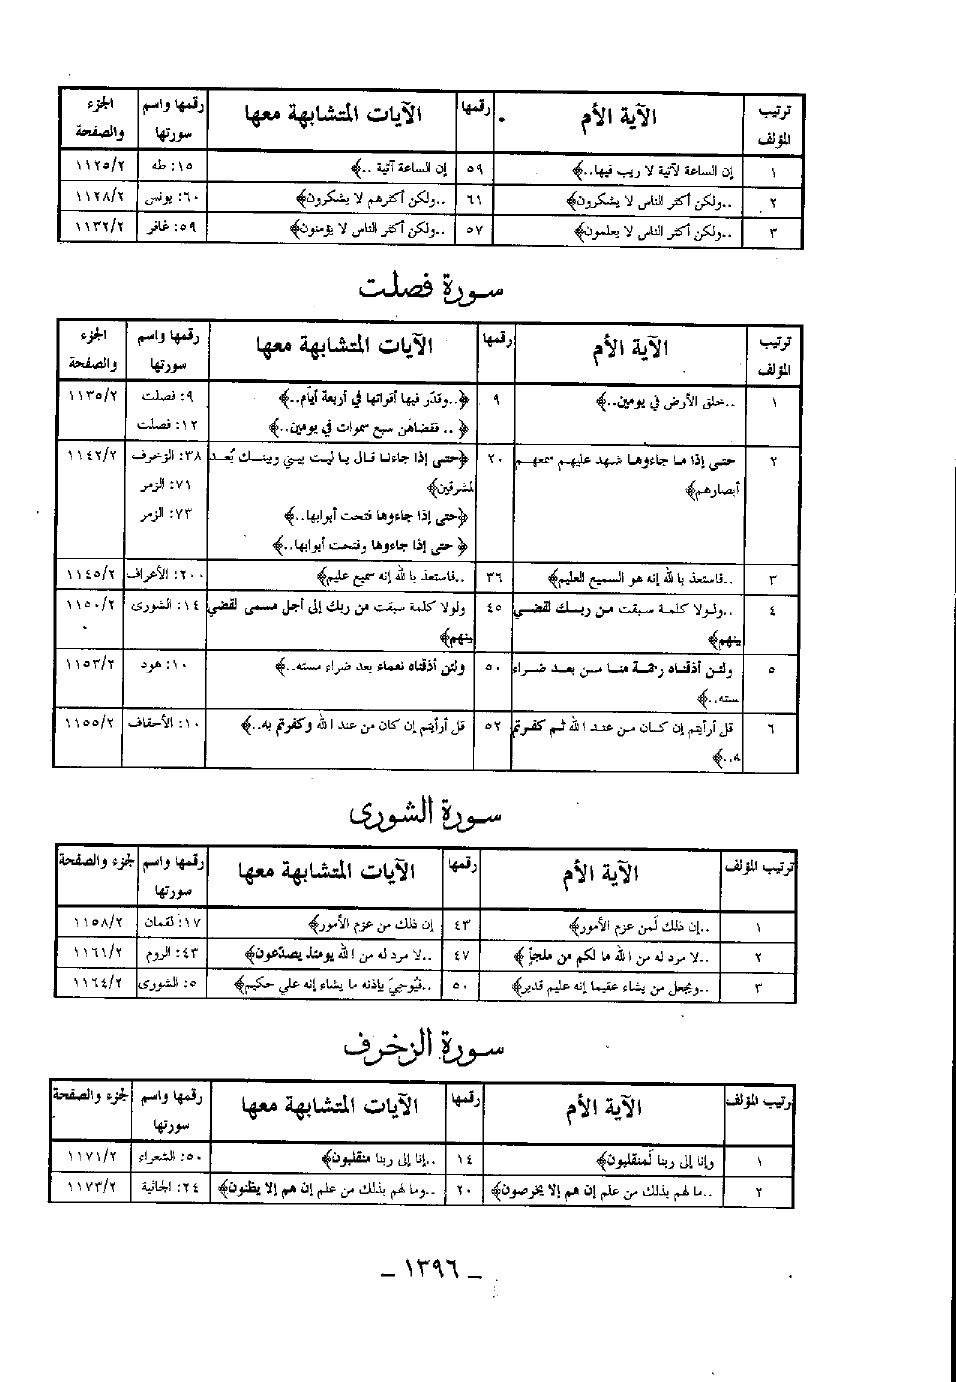 ترتيب المؤلف | الآية الأم | رقمها | الآيات المتشابهة معها | رقمها واسم سورتها | الجزء والصفحة
١ | إن الساعة لآتية لا ريب فيها..﴾ | ٥٩ | إن الساعة آتية ..﴾ | ١٥: طه | ١١٢٥/٢
٢ | ..ولكن أكثر الناس لا يشكرون﴾ | ٦١ | ..ولكن أكثرهم لا يشكرون﴾ | ٦٠: يونس | ١١٢٨/٢
٣ | ..ولكن أكثر الناس لا يعلمون﴾ | ٥٧ | ..ولكن أكثر الناس لا يؤمنون﴾ | ٥٩: غافر | ١١٣٢/٢
سورة فصلت
ترتيب المؤلف | الآية الأم | رقمها | الآيات المتشابهة معها | رقمها واسم سورتها | الجزء والصفحة
١ | ..خلق الأرض في يومين..﴾ | ٩ | ﴿..وقدّر فيها أقواتها في أربعة أيّام..﴾ | ٩: فصلت | ١١٣٥/٢
﴿.. فقضاهن سبع سموات في يومين..﴾ | ١٢: فصلت
٢ | حتى إذا ما جاءوها شهد عليهم سمعهم | ٢٠ | ﴿حتى إذا جاءنا قال يا ليت بيني وبينك بُعد | ٣٨: الزخرف | ١١٤٢/٢
أبصارهم﴾ | لمشرقين﴾ | ٧١: الزمر
﴿حتى إذا جاءوها فتحت أبوابها..﴾ | ٧٣: الزمر
﴿حتى إذا جاءوها وفتحت أبوابها..﴾
٣ | ..فاستعذ بالله إنه هو السميع العليم﴾ | ٣٦ | ..فاستعذ بالله إنه سميع عليم﴾ | ٢٠٠: الأعراف | ١١٤٥/٢
٤ | ..ولولا كلمة سبقت من ربك لقضي | ٤٥ | ولولا كلمة سبقت من ربك إلى أجل مسمى لقضي | ١٤: الشورى | ١١٥٠/٢
ينهم﴾ | ينهم﴾
٥ | ولئن أذقناه رحمة منا من بعد ضراء | ٥٠ | ولئن أذقناه نعماء بعد ضراء مسته..﴾ | ١٠: هود | ١١٥٣/٢
سته..﴾
٦ | قل أرأيتم إن كان من عند الله ثم كفرتم | ٥٢ | قل أرأيتم إن كان من عند الله وكفرتم به..﴾ | ١٠: الأحقاف | ١١٥٥/٢
ه..﴾
سورة الشورى
ترتيب المؤلف | الآية الأم | رقمها | الآيات المتشابهة معها | رقمها واسم سورتها | لجزء والصفحة
١ | ..إن ذلك لَمن عزم الأمور﴾ | ٤٣ | إن ذلك من عزم الأمور﴾ | ١٧: لقمان | ١١٥٨/٢
٢ | ..لا مرد له من الله ما لكم من ملجإ﴾ | ٤٧ | ..لا مرد له من الله يومئذ يصدّعون﴾ | ٤٣: الروم | ١١٦١/٢
٣ | ..ويجعل من يشاء عقيما إنه عليم قدير﴾ | ٥٠ | ..فيُوحيَ بإذنه ما يشاء إنه علي حكيم﴾ | ٥: الشورى | ١١٦٤/٢
سورة الزخرف
ترتيب المؤلف | الآية الأم | رقمها | الآيات المتشابهة معها | رقمها واسم سورتها | لجزء والصفحة
١ | وإنا إلى ربنا لَمنقلبون﴾ | ١٤ | ..إنا إلى ربنا منقلبون﴾ | ٥٠: الشعراء | ١١٧١/٢
٢ | ..ما لهم بذلك من علم إن هم إلا يخرصون﴾ | ٢٠ | ..وما لهم بذلك من علم إن هم إلا يظنون﴾ | ٢٤: الجاثية | ١١٧٣/٢
– ١٣٩٦ –